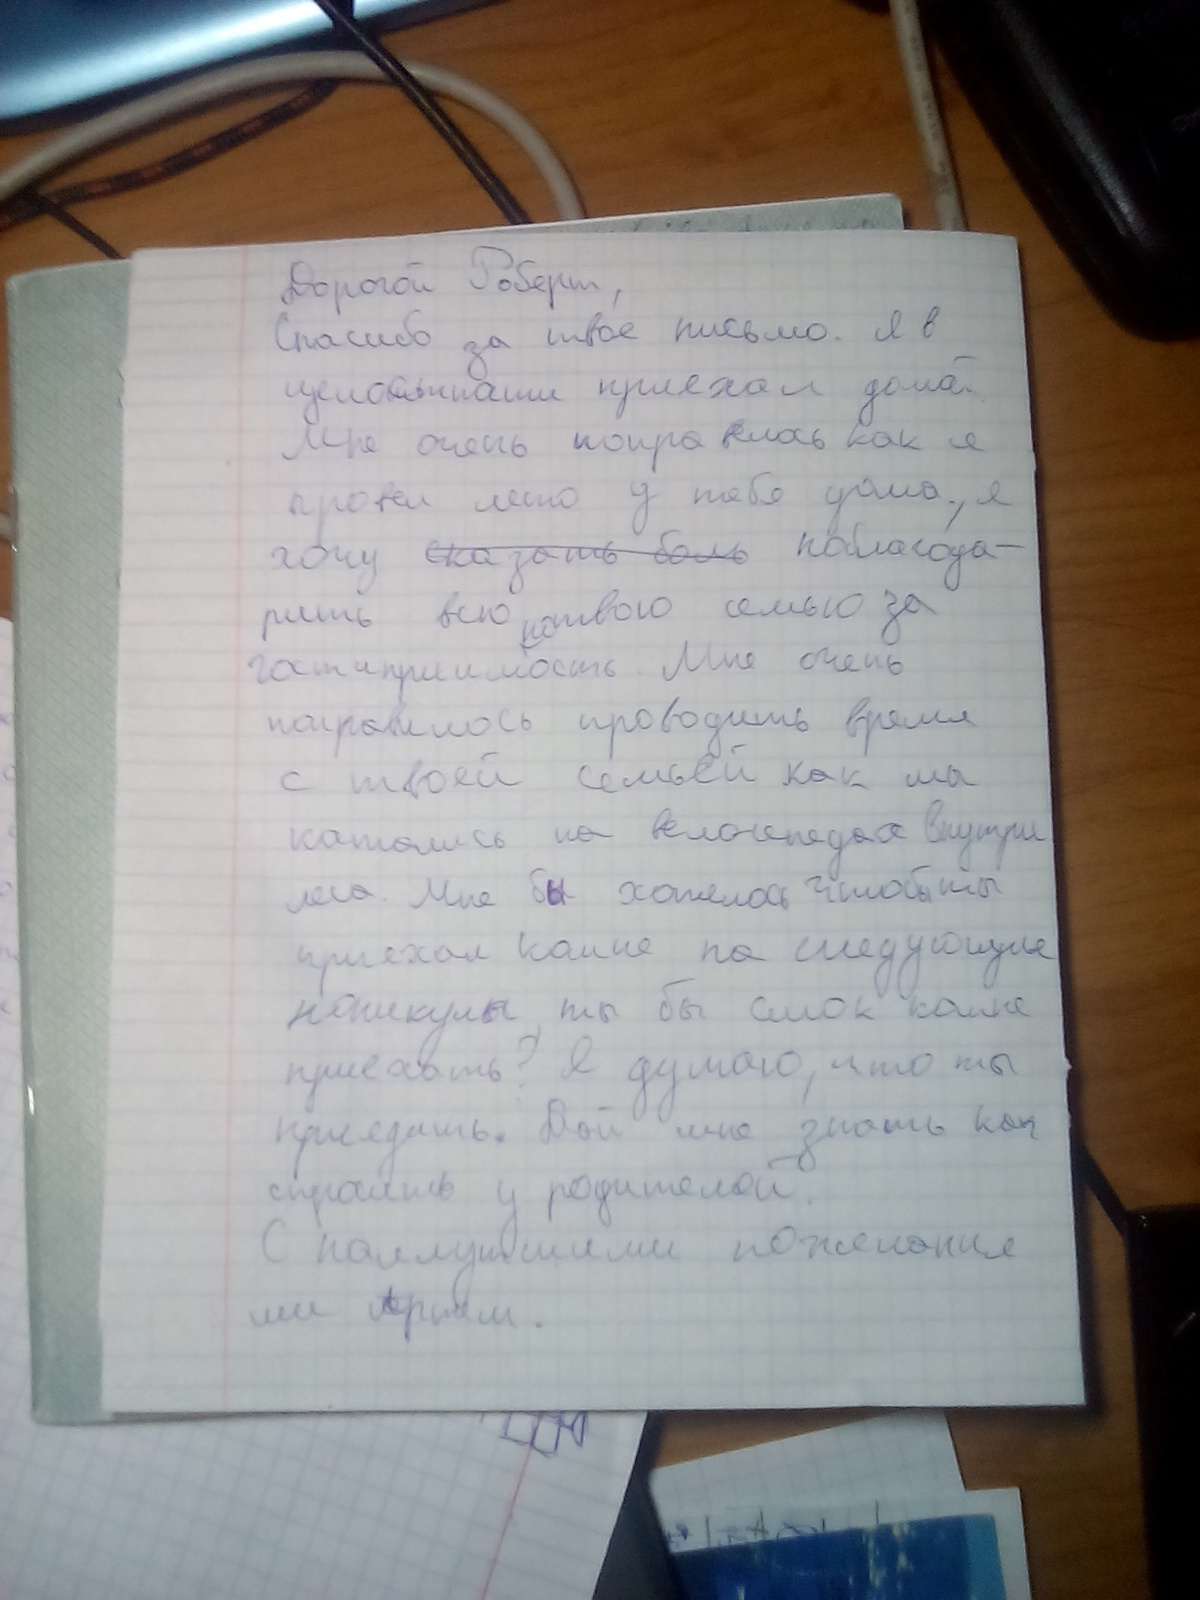 Дорогой Роберт,
Спасибо за твое письмо. Я в
приехал домой
Мне очень понравелось как я
провел лето у тебя дома., я
хочу сказать боль поблагода-
рить всю твою семью за
гостиприимность. Мне очень
понравилось проводить время
с твоей семьей как мы
катались на велосипедах внутри
леса. Мне бы хотелось чтобы ты
приехал комне на следующие
каникулы, ты бы смок комне
приехать? Я думаю, что ты
приедишь. Дай мне знать как
спросишь у родителей.
С наилучшими пожелания
ми Артём.